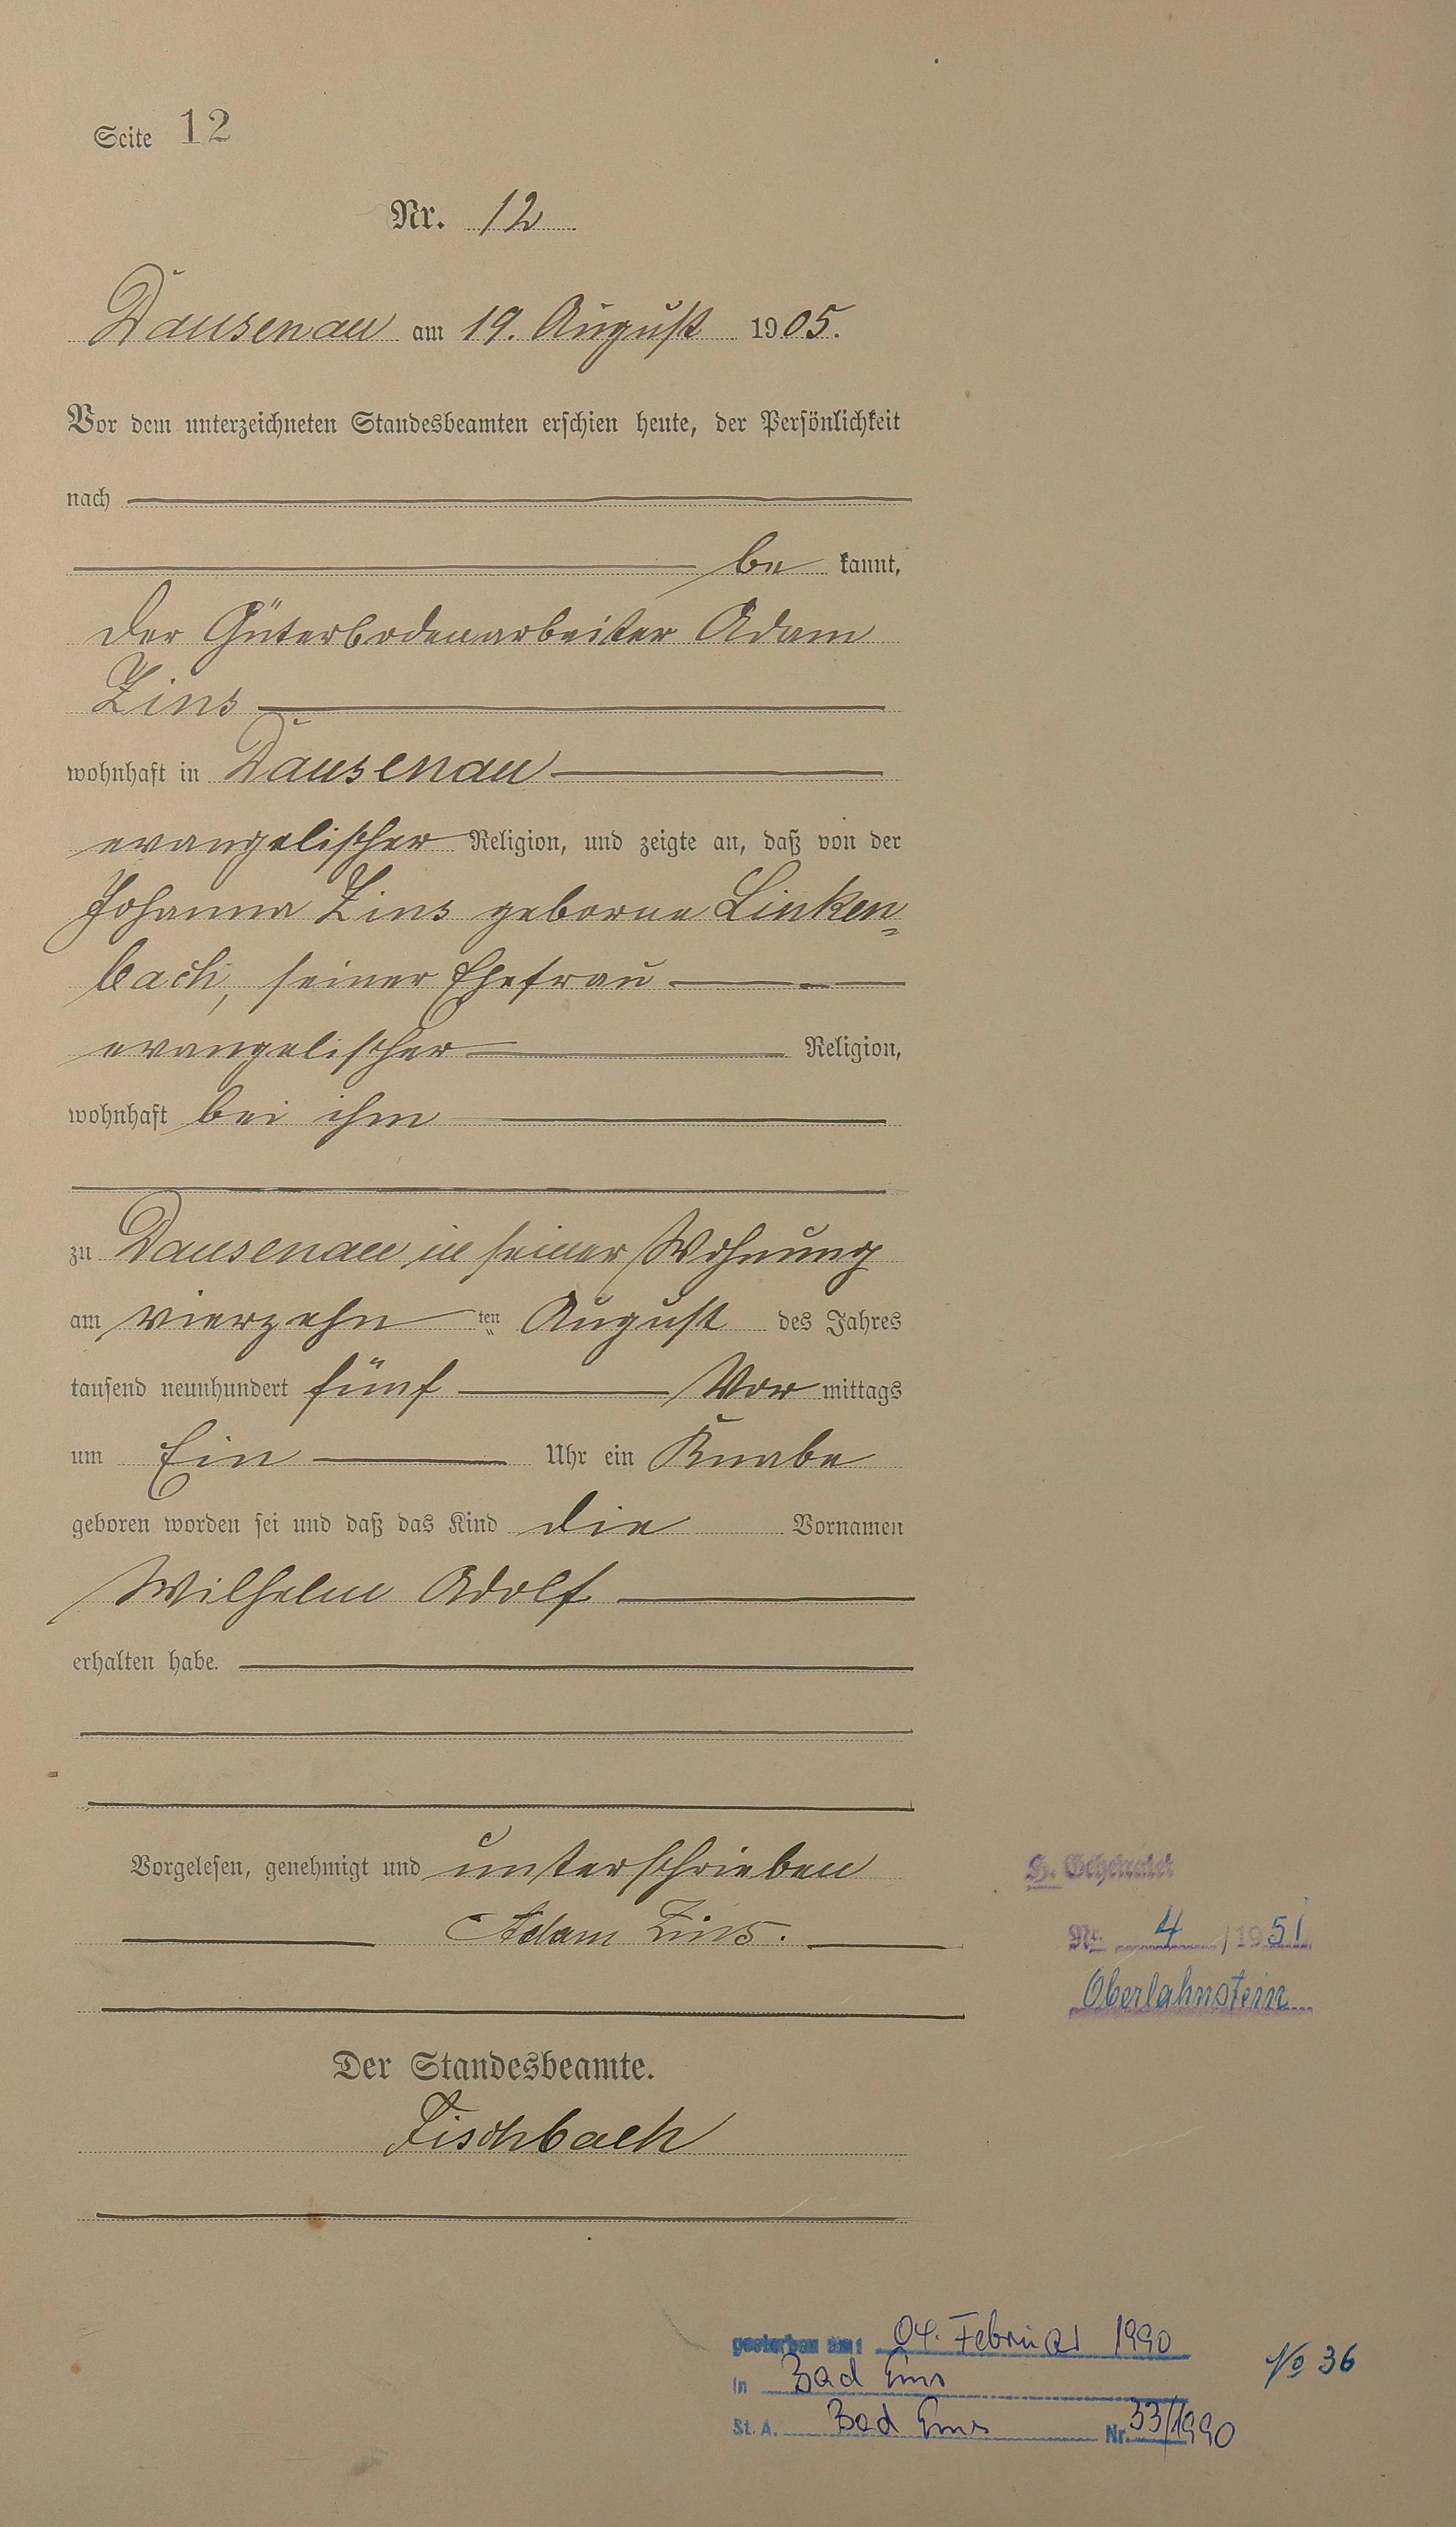 Seite 12
Nr. 12
Dausenau am 19. August 1905.
Vor dem unterzeichneten Standesbeamten erschien heute, der Persönlichkeit
nach
be kannt,
der Güterbodenarbeiter Adam
Zins
wohnhaft in Dausenau
evangelischer Religion, und zeigte an, daß von der
Johanna Zins geborne Linken=
bach, seiner Ehefrau
evangelischer Religion,
wohnhaft bei ihm
zu Dausenau in seiner Wohnung
am vierzehn ten August des Jahres
tausend neunhundert fünf Vor mittags
um Ein Uhr ein Knabe
geboren worden sei und daß das Kind die Vornamen
Wilhelm Adolf
erhalten habe.
Vorgelesen, genehmigt und unterschrieben
Adam Zins.
Der Standesbeamte.
Fischbach
H. Geheiratet
Nr. 4 / 1951
Oberlahnstein
gestorben am: 04. Februar 1990
in Bad Ems
St. A. Bad Ems Nr. 33/1990
No 36